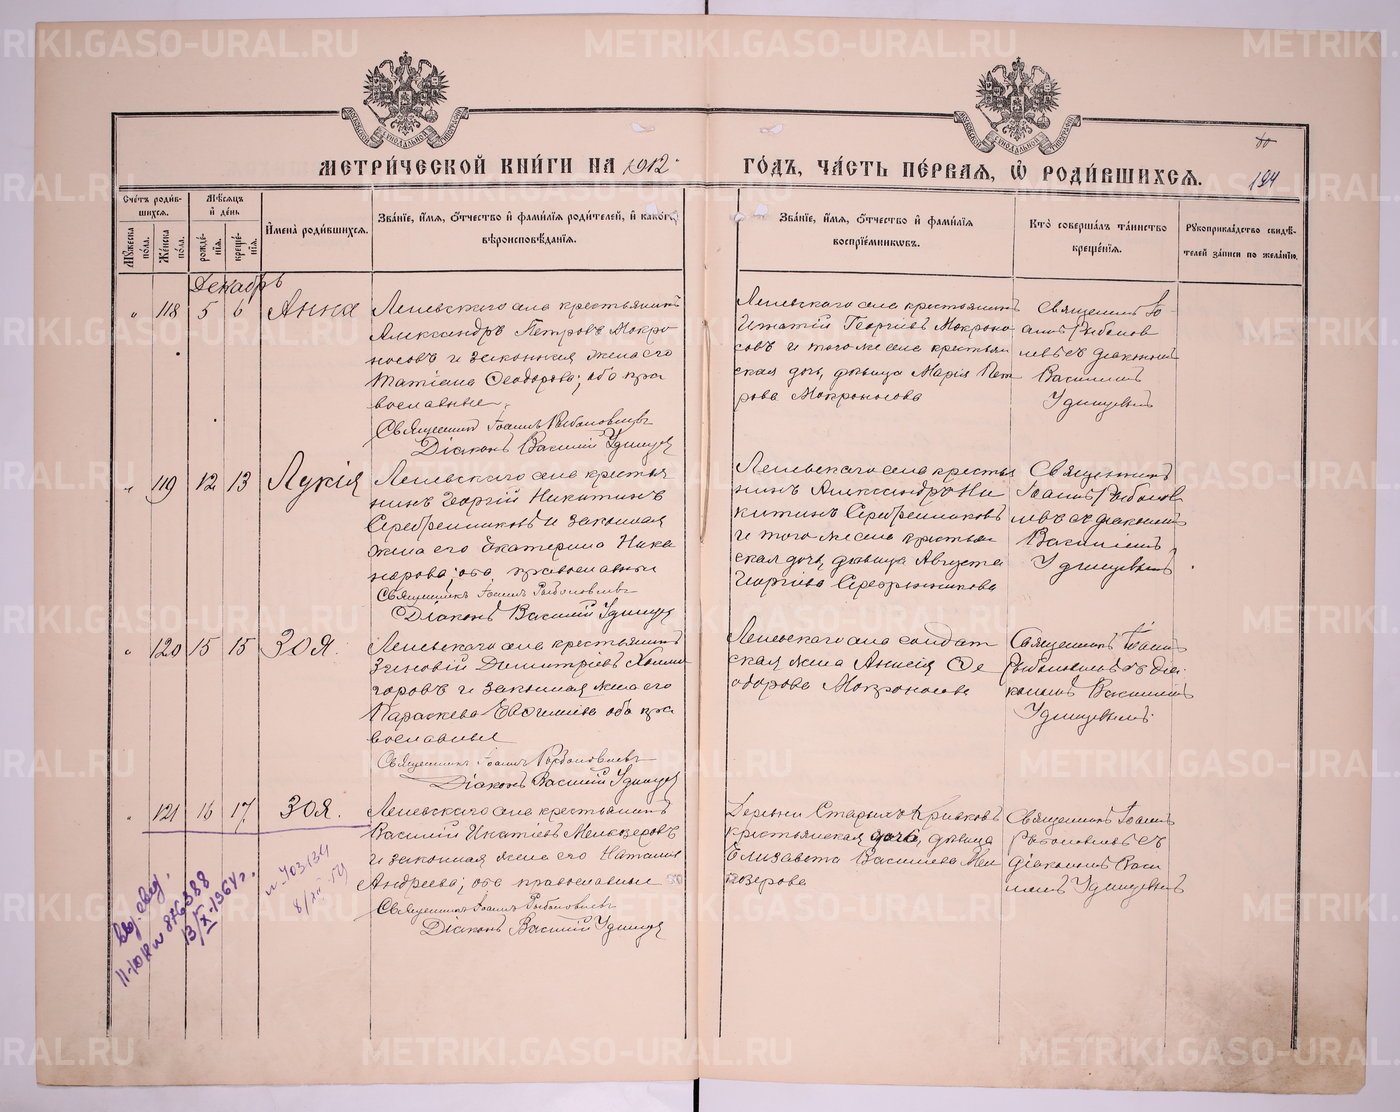 МЕТРИ́ЧЕСКОЙ КНИ́ГИ НА 1912
ГО́ДЪ, ЧА́СТЬ ПЕ́РВАЯ, Ѡ҆ РОДИ́ВШИХСЯ.
194
Сче́тъ роди́вшихся.
Му́жеска по́ла.
Же́нска по́ла.
Мѣ́сяцъ и҆ де́нь
рожде́нїя.
креще́нїя.
И҆мена̀ роди́вшихся.
Зва́нїе, и҆́мя, ѻ҆́тчество и҆ фами́лїя роди́телей, и҆ како́гѡ
вѣроисповѣ́данїя.
Зва́нїе, и҆́мя, ѻ҆́тчество и҆ фами́лїя
воспрїе́мниковъ.
Кто̀ соверша́лъ та́инство
креще́нїя.
Рꙋкоприкла́дство свидѣ́-
телей за́писи по жела́нїю.
Декабрь
" 118 5 6 Анна
Леневскаго села крестьянинъ
Александръ Петровъ Мокро-
носовъ и законная жена его
Татіана Ѳеодорова; оба пра
вославные.
Священникъ Іоаннъ Рыболовлевъ
Діаконъ Василій Удинцев
Леневскаго села крестьянинъ
Игнатій Георгіевъ Мокроно
совъ и того же села крестьян
ская дочь, дѣвица Марія Пет
рова Мокроносова
Священникъ Іо-
аннъ Рыболов
левъ съ діакономъ
Василіемъ
Удинцевымъ
" 119 12 13 Лукія
Леневскаго села крестья
нинъ Георгій Никитинъ
Серебренниковъ и законная
жена его Екатерина Ника
норова; оба православные
Священникъ Іоаннъ Рыболовлевъ
Діаконъ Василій Удинцев
Леневскаго села крестья
нинъ Александръ Ни
китинъ Серебренниковъ
и того же села крестьян
ская дочь, дѣвица Августа
Георгіева Серебренникова
Священникъ
Іоаннъ Рыболов
левъ съ діакономъ
Василіемъ
Удинцевымъ
" 120 15 15 Зоя.
Леневскаго села крестьянинъ
Зиновій Димитріевъ Холмо
горовъ и законная жена его
Параскева Евѳиміева оба пра
вославные
Священникъ Іоаннъ Рыболовлевъ
Діаконъ Василій Удинцев
Леневскаго села солдат
ская жена Анисія Ѳе
одорова Мокроносова
Священникъ Іоаннъ
Рыболовлевъ съ діа-
кономъ Василіемъ
Удинцевымъ.
" 121 16 17 Зоя.
Леневскаго села крестьянинъ
Василій Игнатіевъ Мелкозеровъ
и законная жена его Наталія
Андреева; оба православные
Священникъ Іоаннъ Рыболовлевъ
Діаконъ Василій Удинцев
Деревни Старыхъ Кривковъ
крестьянская дочь, дѣвица
Елизавета Василіева Мел
козерова
Священникъ Іоаннъ
Рыболовлевъ съ
діакономъ Васи
ліемъ Удинцевымъ
№ 876388
13/X-1964г.
METRIKI.GASO-URAL.RU